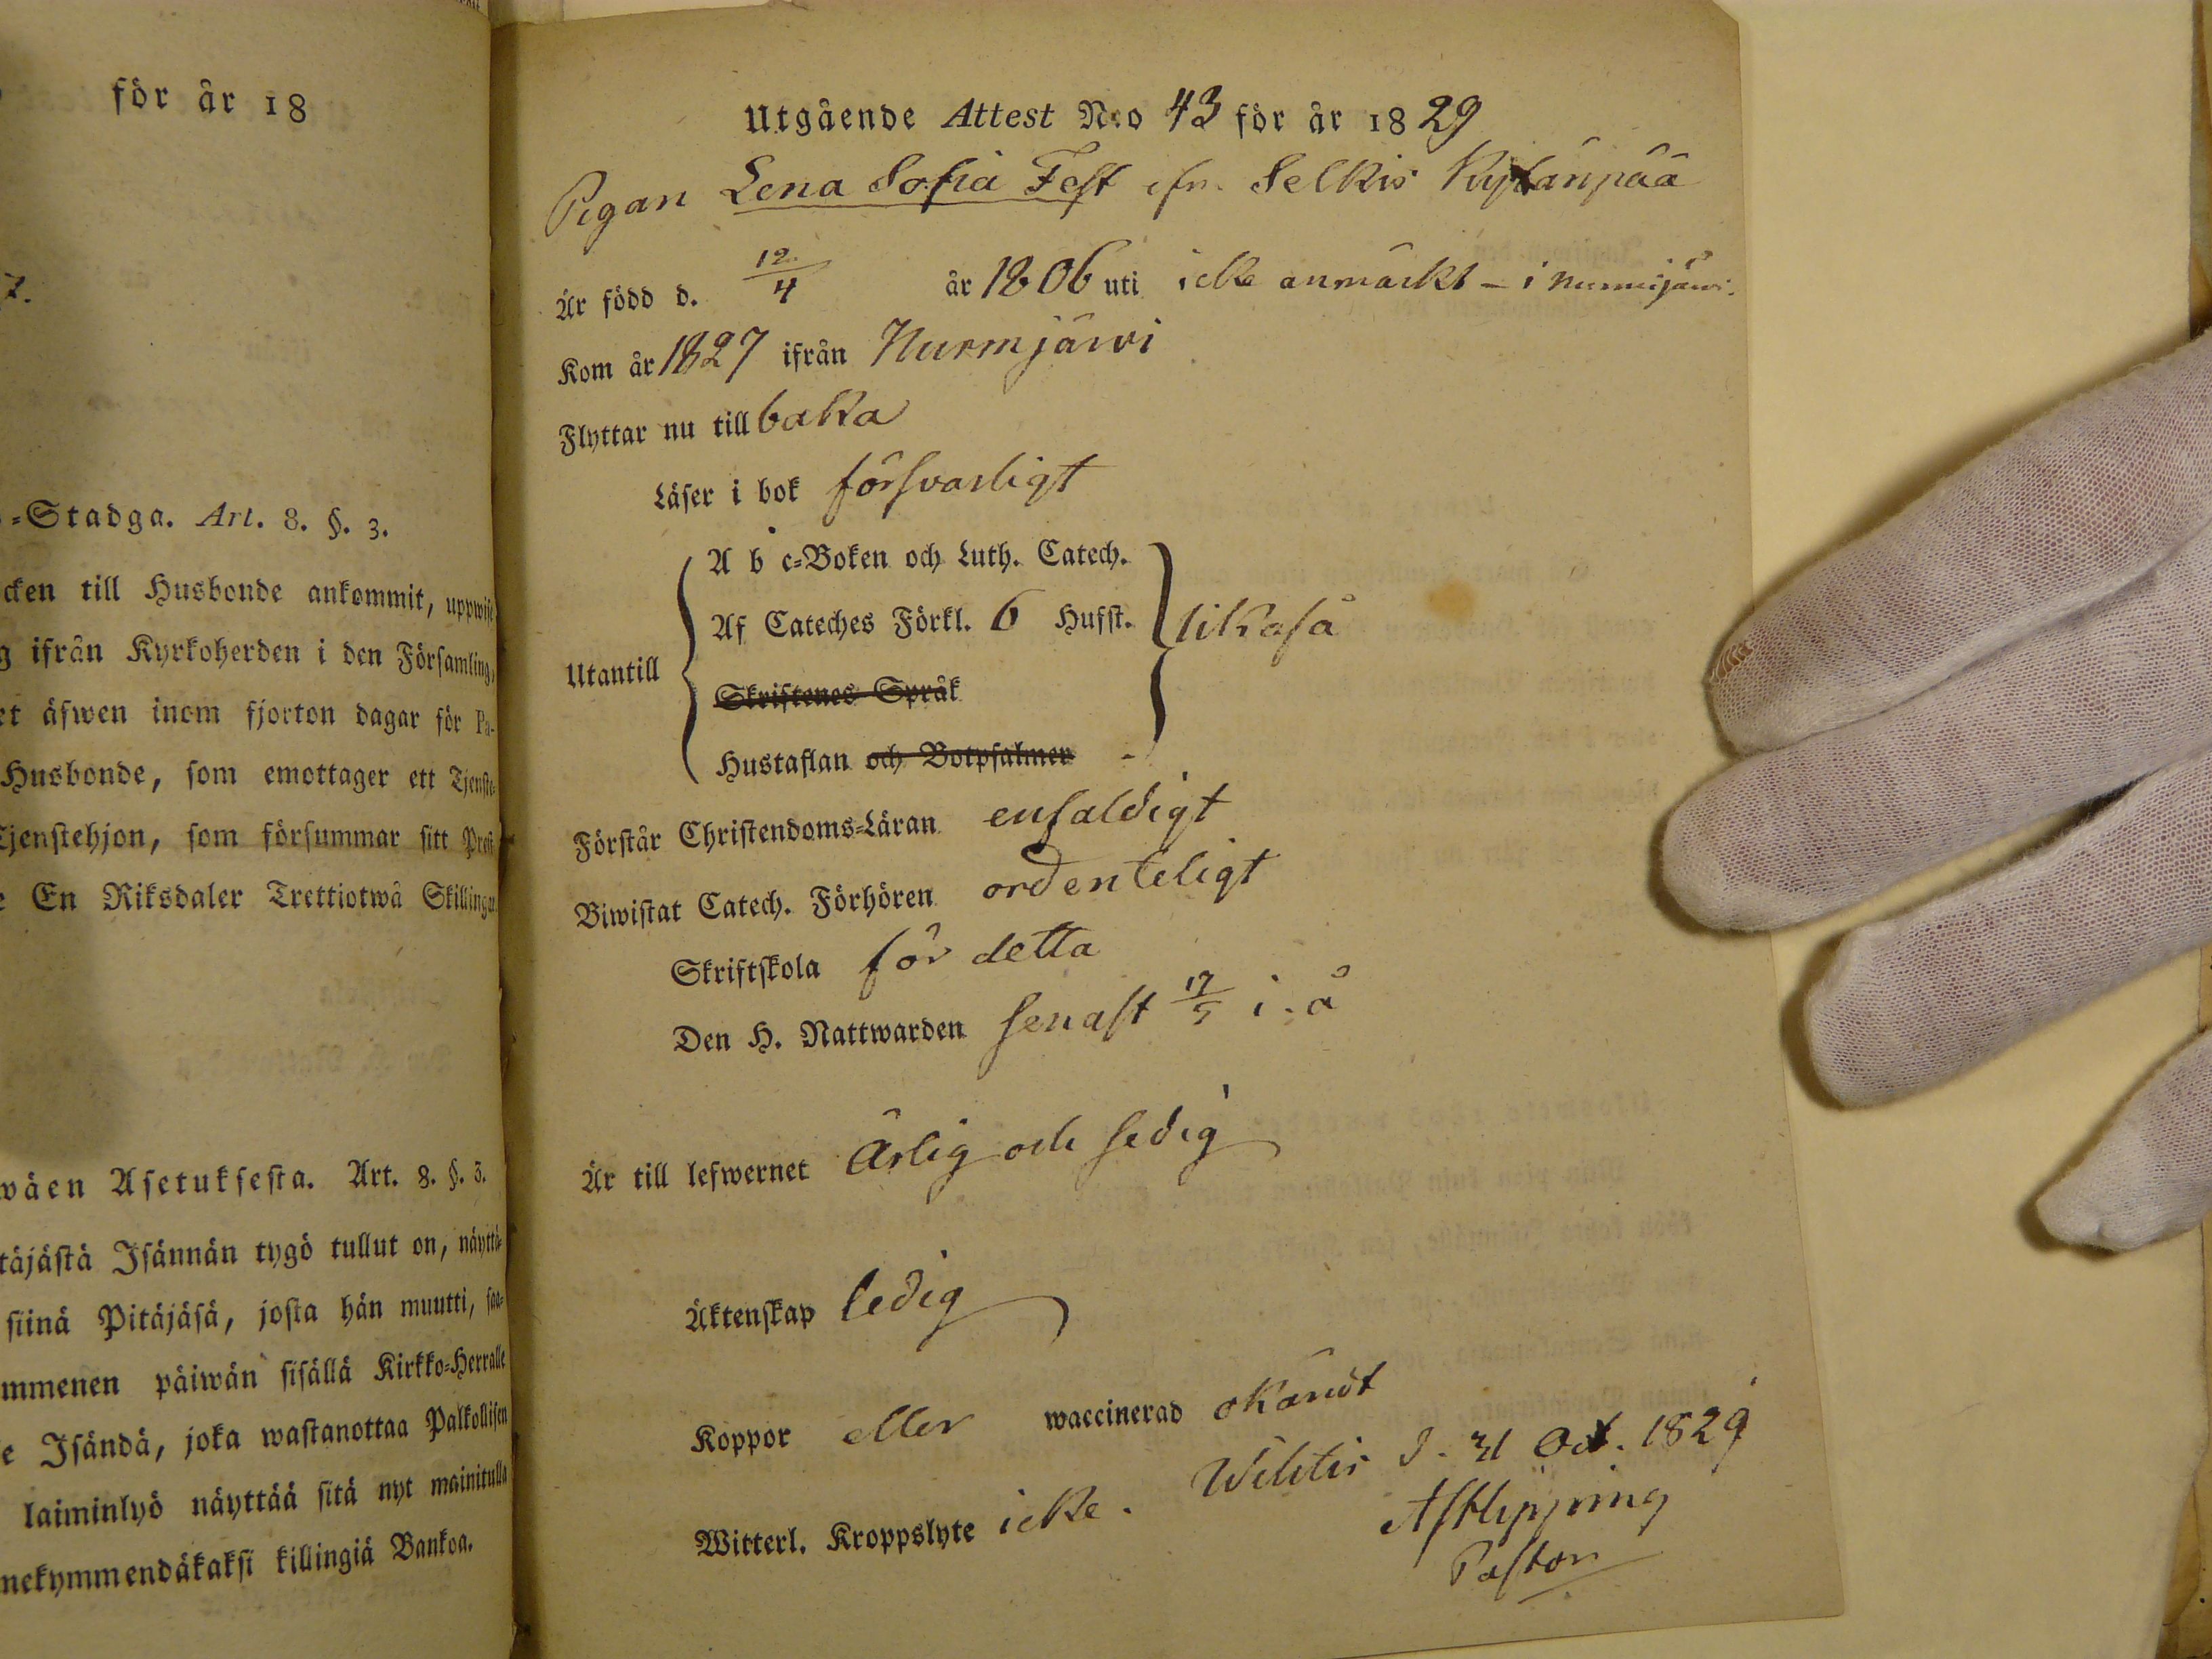 för år 18
7.
=Stadga. Art. 8. §. 3.
cken till Husbonde ankommit, uppwise
g ifrån Kyrkoherden i den Församling,
et äfwen inom fjorton dagar för Pa-
Husbonde, som emottager ett Tjenste-
Tjenstehjon, som försummar sitt Prest
e En Riksdaler Trettiotwå Skillingar
wäen Asetuksesta. Art. 8. §. 3.
täjästä Isännän tygö tullut on, näyttä-
siinä Pitäjäsä, josta hän muutti, saa-
mmenen päiwän sisällä Kirkko-Herralle
e Isändä, joka wastanottaa Palkollisen
laiminlyö näyttää sitä nyt mainitulla
nekymmendäkaksi killingiä Bankoa.
Utgående Attest N:o 43 för år 1829
Pigan Lena Sofia Fest ifr. Selkis Kylänpää
Är född d. 12/4 år 1806 uti icke anmärkt - i Nurmijärvi.
Kom år 1827 ifrån Nurmjärvi
Flyttar nu till baka
Läser i bok försvarligt
A b c-Boken och Luth. Catech.
Af Cateches Förkl. 6 Hufst. likaså
Utantill
Skriftenes Språk
Hustaflan och Botpsalmer -
Förstår Christendoms-Läran enfaldigt
Biwistat Catech. Förhören ordenteligt
Skriftskola för detta
Den H. Nattwarden senast 17/5 i. å
Är till lefwernet Ärlig och sedig
Äktenskap ledig
Koppor eller waccinerad okändt
Witterl. Kroppslyte icke. Wichtis d. 31 Oct. 1829
Pastor